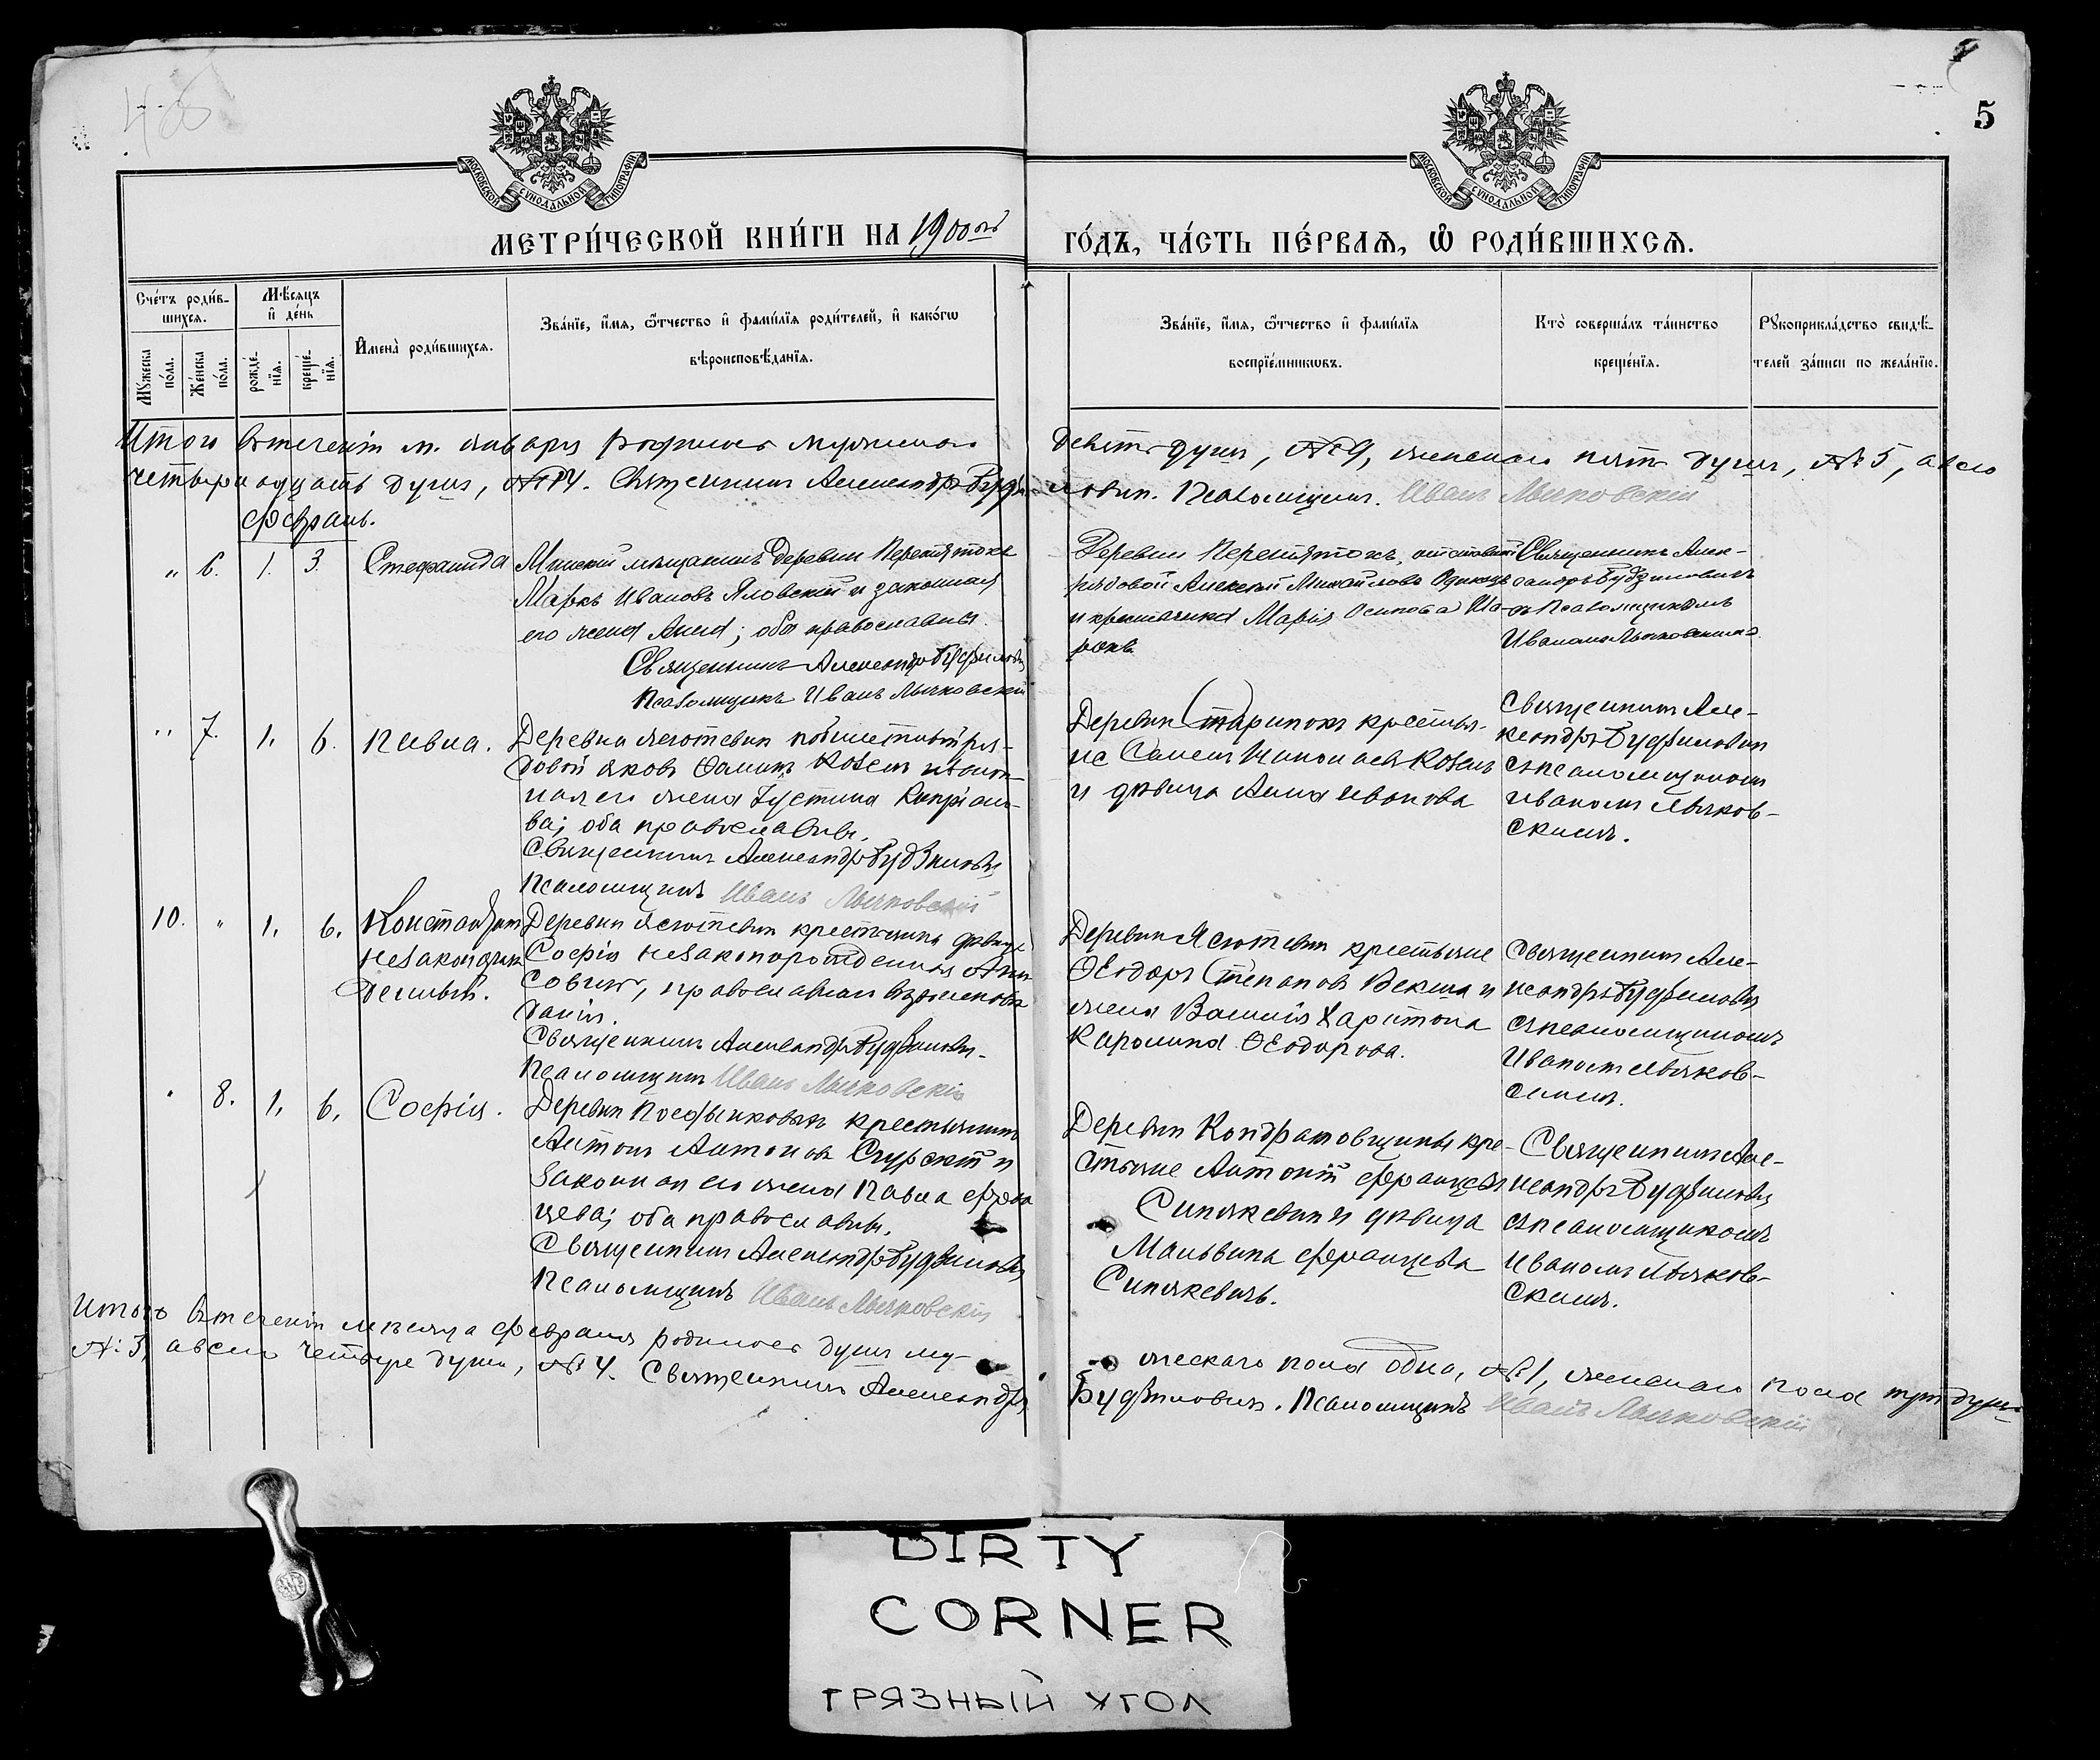 5
МОСКОВСКОЙ СУНОДАЛЬНОЙ ТИПОГРАФІИ
МОСКОВСКОЙ СУНОДАЛЬНОЙ ТИПОГРАФІИ
МЕТРИ́ЧЕСКОЙ КНИ́ГИ НА 1900ый ГО́ДЪ, ЧА́СТЬ ПЕ́РВАѦ, Ѡ҆ РОДИ́ВШИХСѦ.
Сче́тъ роди́в-
шихсѧ.
Мꙋ́жеска по́ла.
Же́нска по́ла.
Мѣ́сѧцъ
и҆ де́нь
рожде́-
нїѧ.
креще́-
нїѧ.
И҆мена̀ роди́вшихсѧ.
Зва́нїе, и҆́мѧ, ѻ҆́тчество и҆ фами́лїѧ роди́телей, и҆ како́гѡ
вѣроисповѣ́данїѧ.
Зва́нїе, и҆́мѧ, ѻ҆́тчество и҆ фами́лїѧ
воспрїе́мникѡвъ.
Кто̀ соверша́лъ та́инство
креще́нїѧ.
Рꙋкоприкла́дство свидѣ́-
телей за́писи по жела́нїю.
Итого въ теченіи м. января родилось мужскаго
девять душъ, № 9, женскаго пять душъ, № 5, а всего
четырнадцать душъ, № 14. Священникъ Александръ Будзиловичъ. Псаломщикъ Иванъ Лычковскій
Февраль.
„ 6. 1. 3. Стефанида
Минскій мѣщанинъ деревни Перетятокъ
Маркъ Ивановъ Яловскій и законная
его жена Анна; оба православны.
Священникъ Александръ Будзиловичъ
Псаломщикъ Иванъ Лычковскій
Деревни Перетятокъ, отставной
рядовой Алексѣй Михайловъ
и крестьянка Марія Осипова
Священникъ Алек-
сандръ Будзиловичъ
съ Псаломщикомъ
Иваномъ Лычковскимъ
„ 7. 1. 6. Павла.
Деревни Яготевич ря-
довой Яковъ Ѳоминъ Козелъ и закон-
ная его жена Іустина Кипріано-
ва; оба православны.
Священникъ Александръ Будзиловичъ
Псаломщикъ Иванъ Лычковскій
Деревни Старинокъ крестья-
не Козелъ
и дѣвица Анна Иванова
Священникъ Але-
ксандръ Будзиловичъ
съ псаломщикомъ
Иваномъ Лычков-
скимъ.
10. „ 1. 6. Константинъ
незаконорож-
денный.
Деревни крестьянка дѣвица
Софія незаконорожденная
православнаго вѣроисповѣ-
данія.
Священникъ Александръ Будзиловичъ
Псаломщикъ Иванъ Лычковскій
Деревни крестьяне
Ѳеодоръ Степановъ Векша и
жена Василія Харитона
Каролина Ѳеодорова.
Священникъ Але-
ксандръ Будзиловичъ
съ псаломщикомъ
Иваномъ Лычков-
скимъ.
„ 8. 1. 6. Софія.
Деревни крестьянинъ
Антонъ Антоновъ и
законная его жена Павла Фран-
цева; оба православны.
Священникъ Александръ Будзиловичъ
Псаломщикъ Иванъ Лычковскій
Деревни Кондратовщины кре-
стьяне Антоній Францевъ
Синякевичъ и дѣвица
Мальвина Францева
Синякевичъ.
Священникъ Але-
ксандръ Будзиловичъ
съ псаломщикомъ
Иваномъ Лычков-
скимъ.
Итого въ теченіи мѣсяца февраля родилось душъ му-
жескаго пола одна, № 1, женскаго пола три души
№ 3, а всего четыре души, № 4. Священникъ Александръ
Будзиловичъ. Псаломщикъ Иванъ Лычковскій
DIRTY
CORNER
ГРЯЗНЫЙ УГОЛ